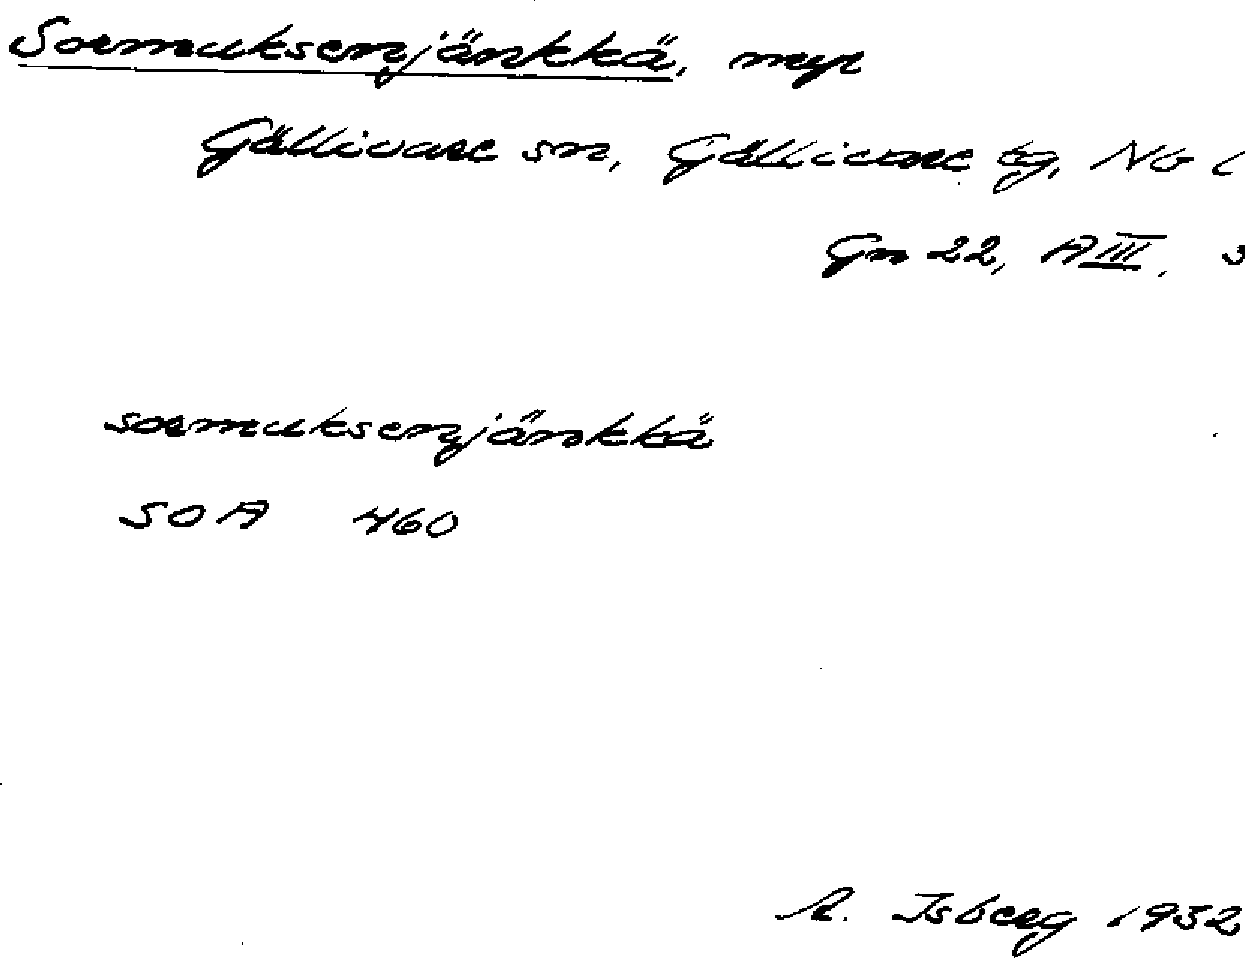 Sormuksenjänkkä, myr
Gällivare sn, Gällivare tg, Nb l
Gn 22, A III, 3
sormuksenjänkkä
SOA 460
A. Isberg 1932